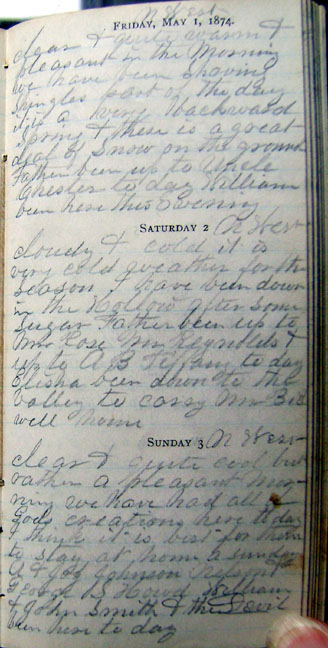 N West
FRIDAY, MAY 1, 1874.
clear & quite warm &
pleasant in the Morning
we have been shaving
shingles part of the day
its a very backward
spring & there is a great
deal of snow on the ground
Father been up to Uncle
Chester to day William
been here this Evening
SATURDAY 2 N West
cloudy & cold it is
very cold weather for the
season I have been down
in the Hollow after some
sugar Father been up to
Mr Rose Mr Reynolds &
up to A B Tiffany to day
Elisha been down to the
valley to carry Mr
well home
SUNDAY 3 N West
clear & quite cool but
rather a pleasant Mor
ning we have had all
Gods creations here to day
I think it is best for them
to stay at home a sunday
A & Johnson Nelson &
George B Howd William
& John Smith & the Devil
been here to day